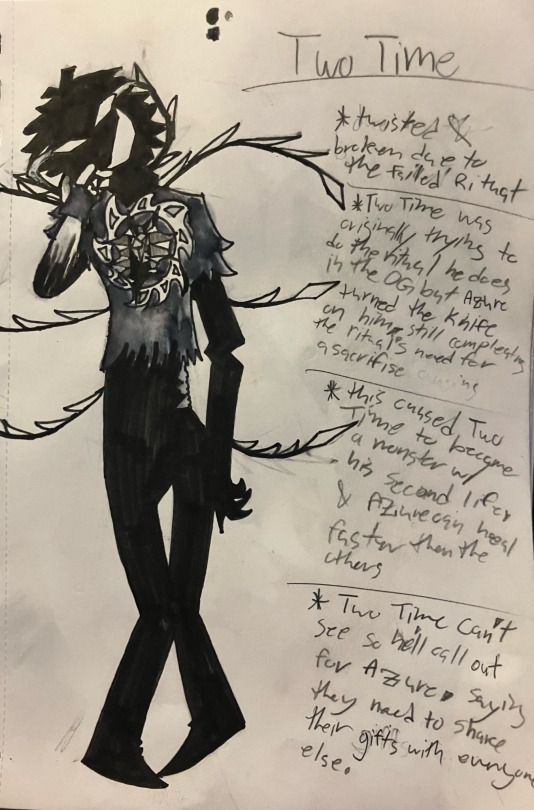 Two Time
* twisted &
broken due to
the failed Ritual
* Two Time was
originally trying to
do the ritual he does
in the OG but Azure
turned the knife
on him, still compleating
the rituals need for
a sacrifise causing
* this caused Two
Time to become
a monster w/
his second life
& Azure can heal
faster then the
others
* Two Time can't
see so he'll call out
for Azure, saying
they need to share
their gifts with everyone
else.